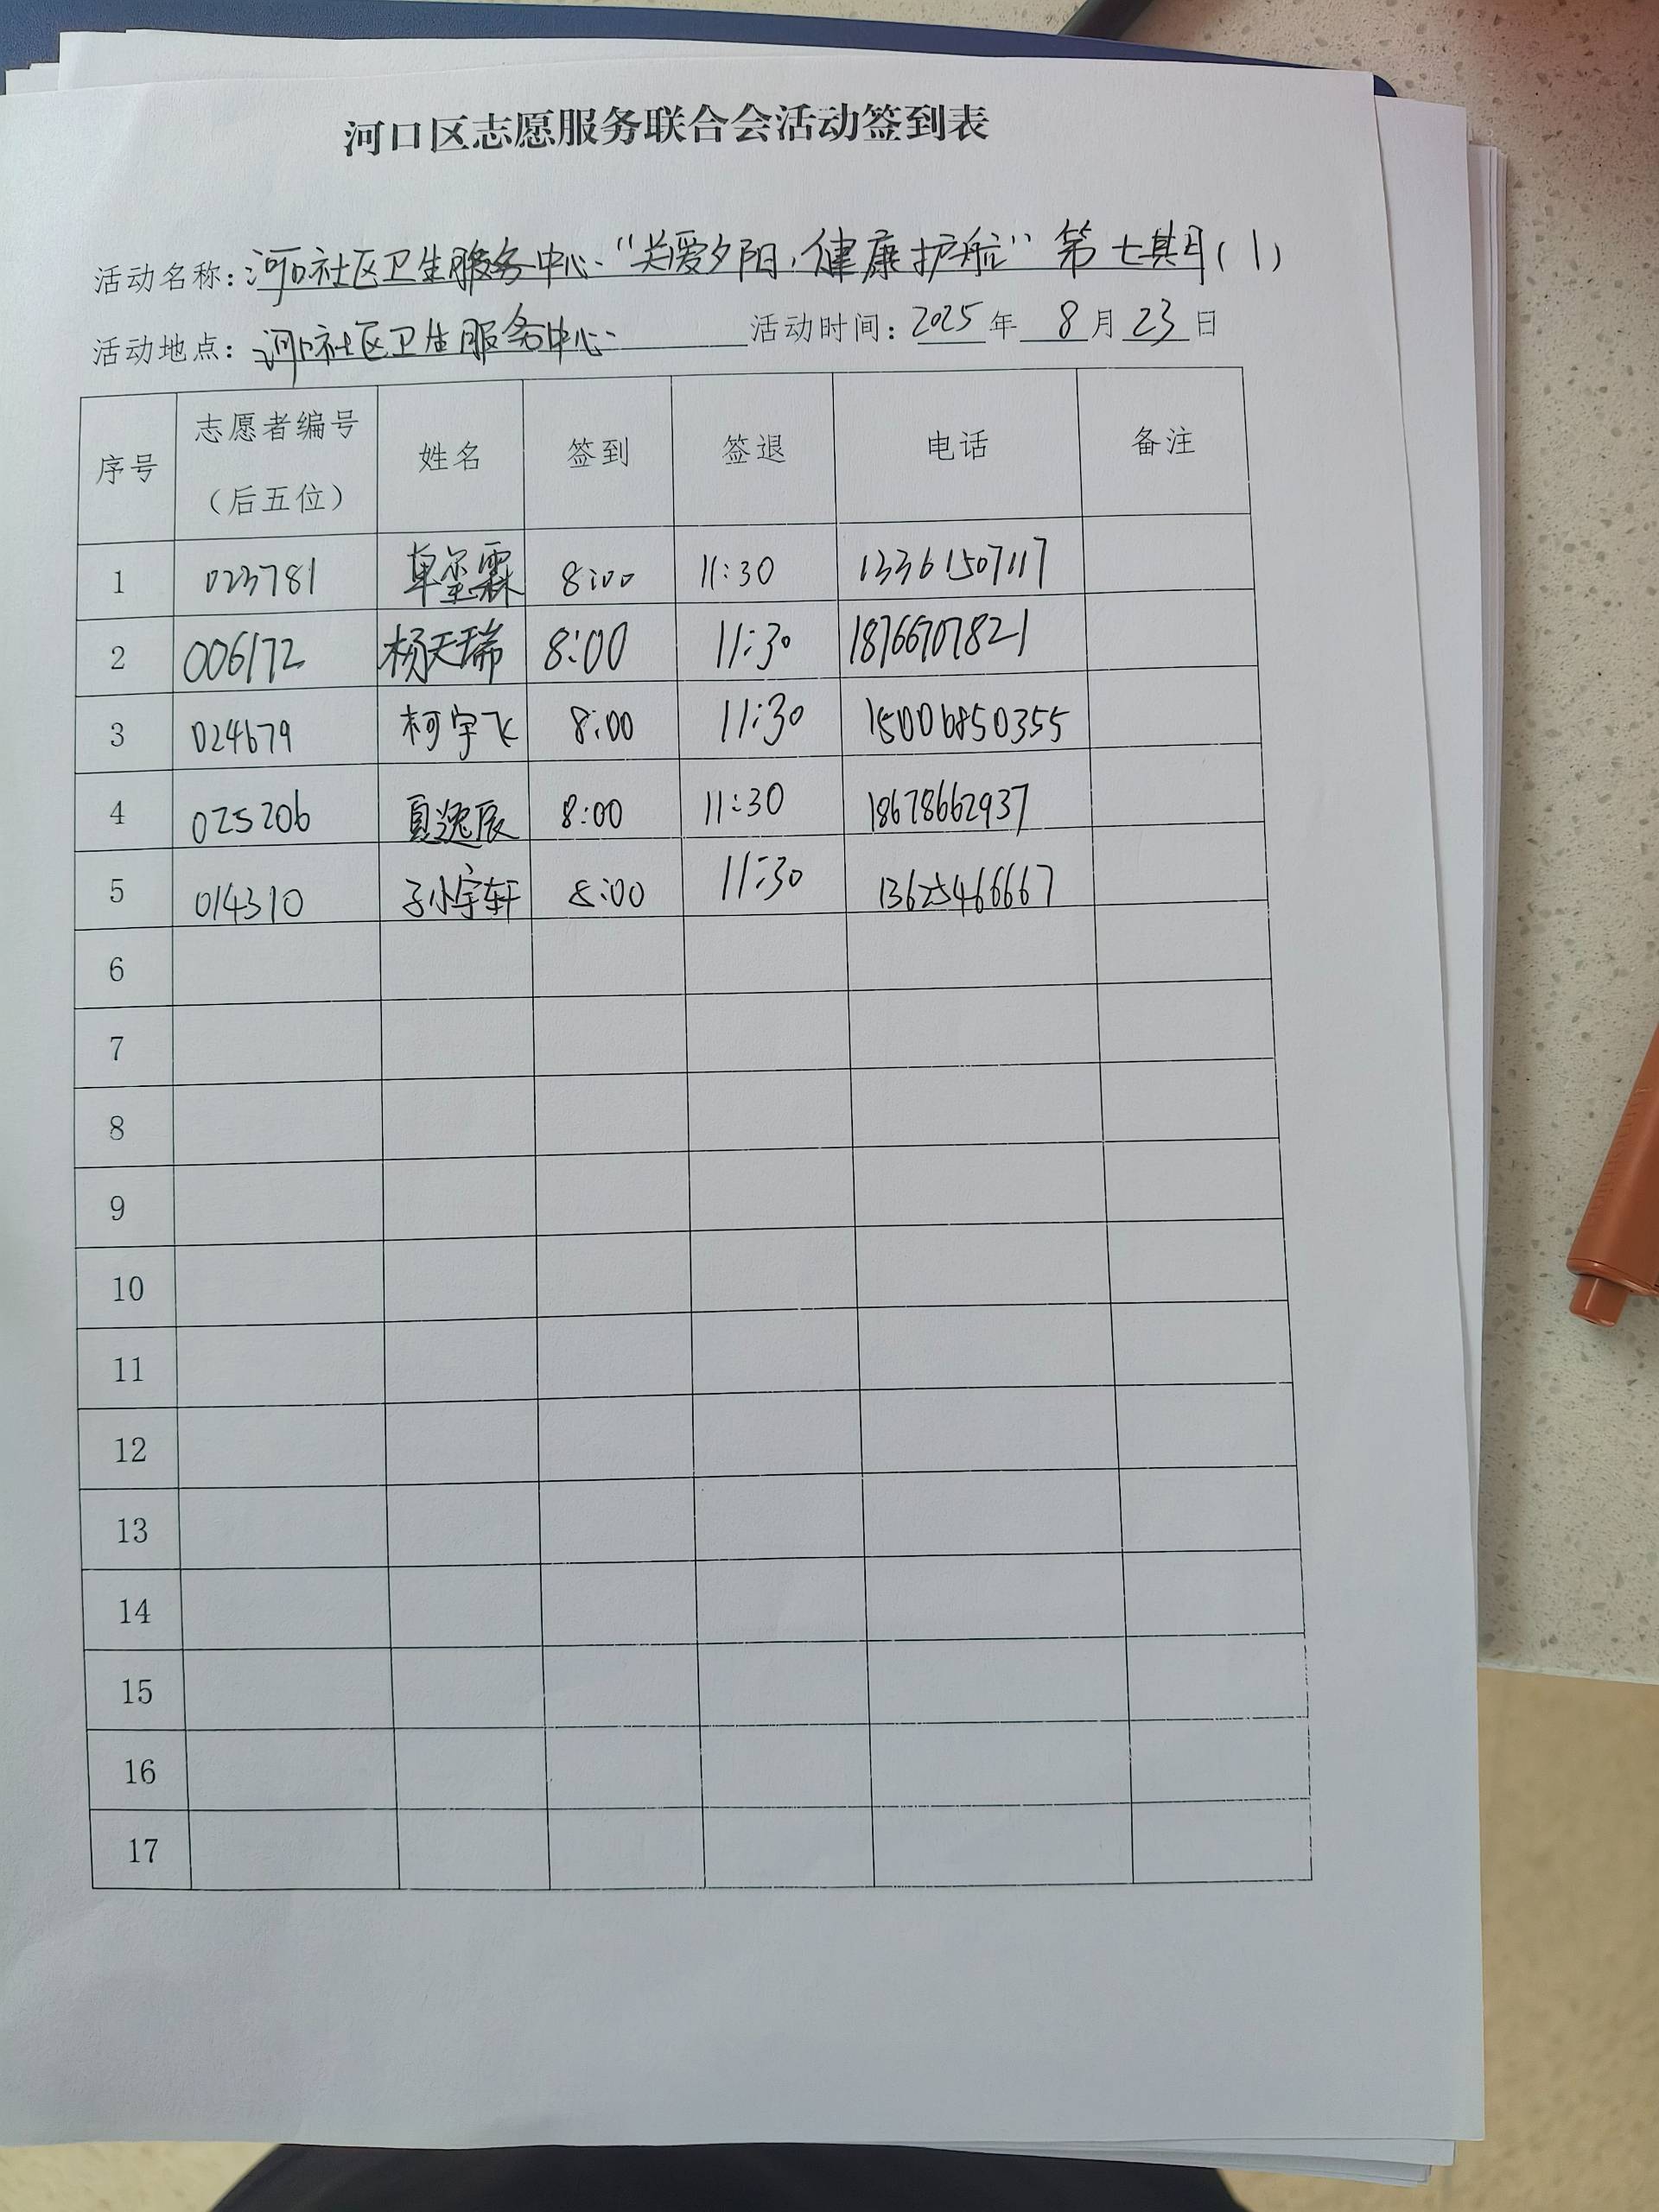 河口区志愿服务联合会活动签到表
活动名称：河口社区卫生服务中心"关爱夕阳，健康护航"第七期(1)
活动地点：河口社区卫生服务中心 活动时间：2025年 8月23日
序号 志愿者编号（后五位） 姓名 签到 签退 电话 备注
1 023781 卓玺霖 8:00 11:30 13361507117
2 006172 杨天瑞 8:00 11:30 18766707821
3 024679 柯宇飞 8:00 11:30 15006850355
4 025206 夏逸辰 8:00 11:30 18678662937
5 014310 孙宇轩 8:00 11:30
6
7
8
9
10
11
12
13
14
15
16
17